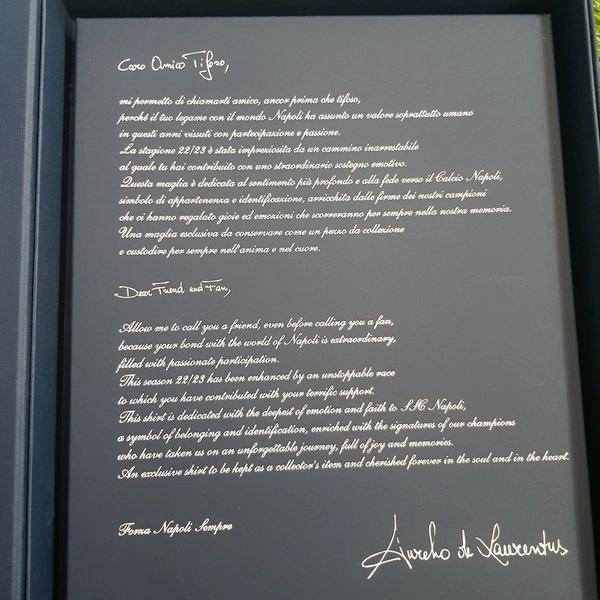 Caro Amico Tifoso,
mi permetto di chiamarti amico, ancor prima che tifoso,
perché il tuo legame con il mondo Napoli ha assunto un valore soprattutto umano
in questi anni vissuti con partecipazione e passione.
La stagione 22/23 è stata impreziosita da un cammino inarrestabile
al quale tu hai contribuito con uno straordinario sostegno emotivo.
Questa maglia è dedicata al sentimento più profondo e alla fede verso il Calcio Napoli,
simbolo di appartenenza e identificazione, arricchita dalle firme dei nostri campioni
che ci hanno regalato gioie ed emozioni che scorreranno per sempre nella nostra memoria.
Una maglia esclusiva da conservare come un pezzo da collezione
e custodire per sempre nell'anima e nel cuore.
Dear Friend and Fan,
Allow me to call you a friend, even before calling you a fan,
because your bond with the world of Napoli is extraordinary,
filled with passionate participation.
This season 22/23 has been enhanced by an unstoppable race
to which you have contributed with your terrific support.
This shirt is dedicated with the deepest of emotion and faith to SSC Napoli,
a symbol of belonging and identification, enriched with the signatures of our champions
who have taken us on an unforgettable journey, full of joy and memories.
An exclusive shirt to be kept as a collector's item and cherished forever in the soul and in the heart.
Forza Napoli Sempre
Aurelio de Laurentiis